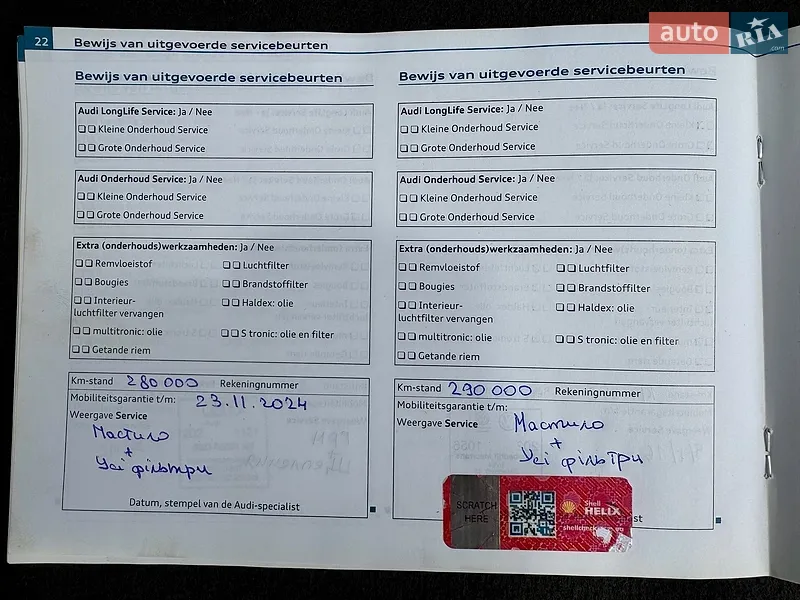 22 Bewijs van uitgevoerde servicebeurten
auto RIA .com
Bewijs van uitgevoerde servicebeurten
Audi LongLife Service: Ja / Nee
Kleine Onderhoud Service
Grote Onderhoud Service
Audi Onderhoud Service: Ja / Nee
Kleine Onderhoud Service
Grote Onderhoud Service
Extra (onderhouds)werkzaamheden: Ja / Nee
Remvloeistof Luchtfilter
Bougies Brandstoffilter
Interieur- Haldex: olie
luchtfilter vervangen
multitronic: olie S tronic: olie en filter
Getande riem
Km-stand 280 000 Rekeningnummer
Mobiliteitsgarantie t/m: 23.11.2024
Weergave Service
Мастило
+
Усі фільтри
Datum, stempel van de Audi-specialist
Bewijs van uitgevoerde servicebeurten
Audi LongLife Service: Ja / Nee
Kleine Onderhoud Service
Grote Onderhoud Service
Audi Onderhoud Service: Ja / Nee
Kleine Onderhoud Service
Grote Onderhoud Service
Extra (onderhouds)werkzaamheden: Ja / Nee
Remvloeistof Luchtfilter
Bougies Brandstoffilter
Interieur- Haldex: olie
luchtfilter vervangen
multitronic: olie S tronic: olie en filter
Getande riem
Km-stand 290 000 Rekeningnummer
Mobiliteitsgarantie t/m:
Weergave Service Мастило
+
Усі фільтри
SCRATCH
HERE
Shell
HELIX